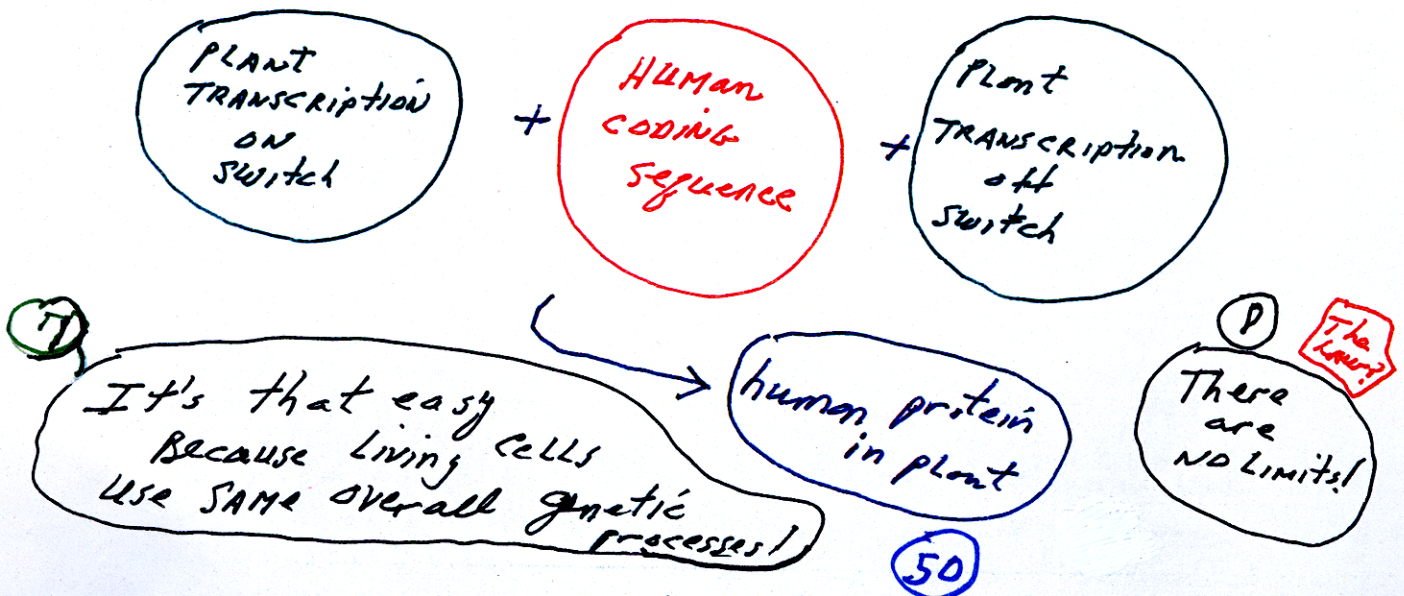 PLANT
TRANSCRIPTION
ON
SWITCH
+
HUMAN
CODING
Sequence
+
PLANT
TRANSCRIPTION
OFF
SWITCH
7
It's that easy
Because Living Cells
Use SAME overall genetic
processes!
human protein
in plant
50
8
The
There
are
NO LIMITS!